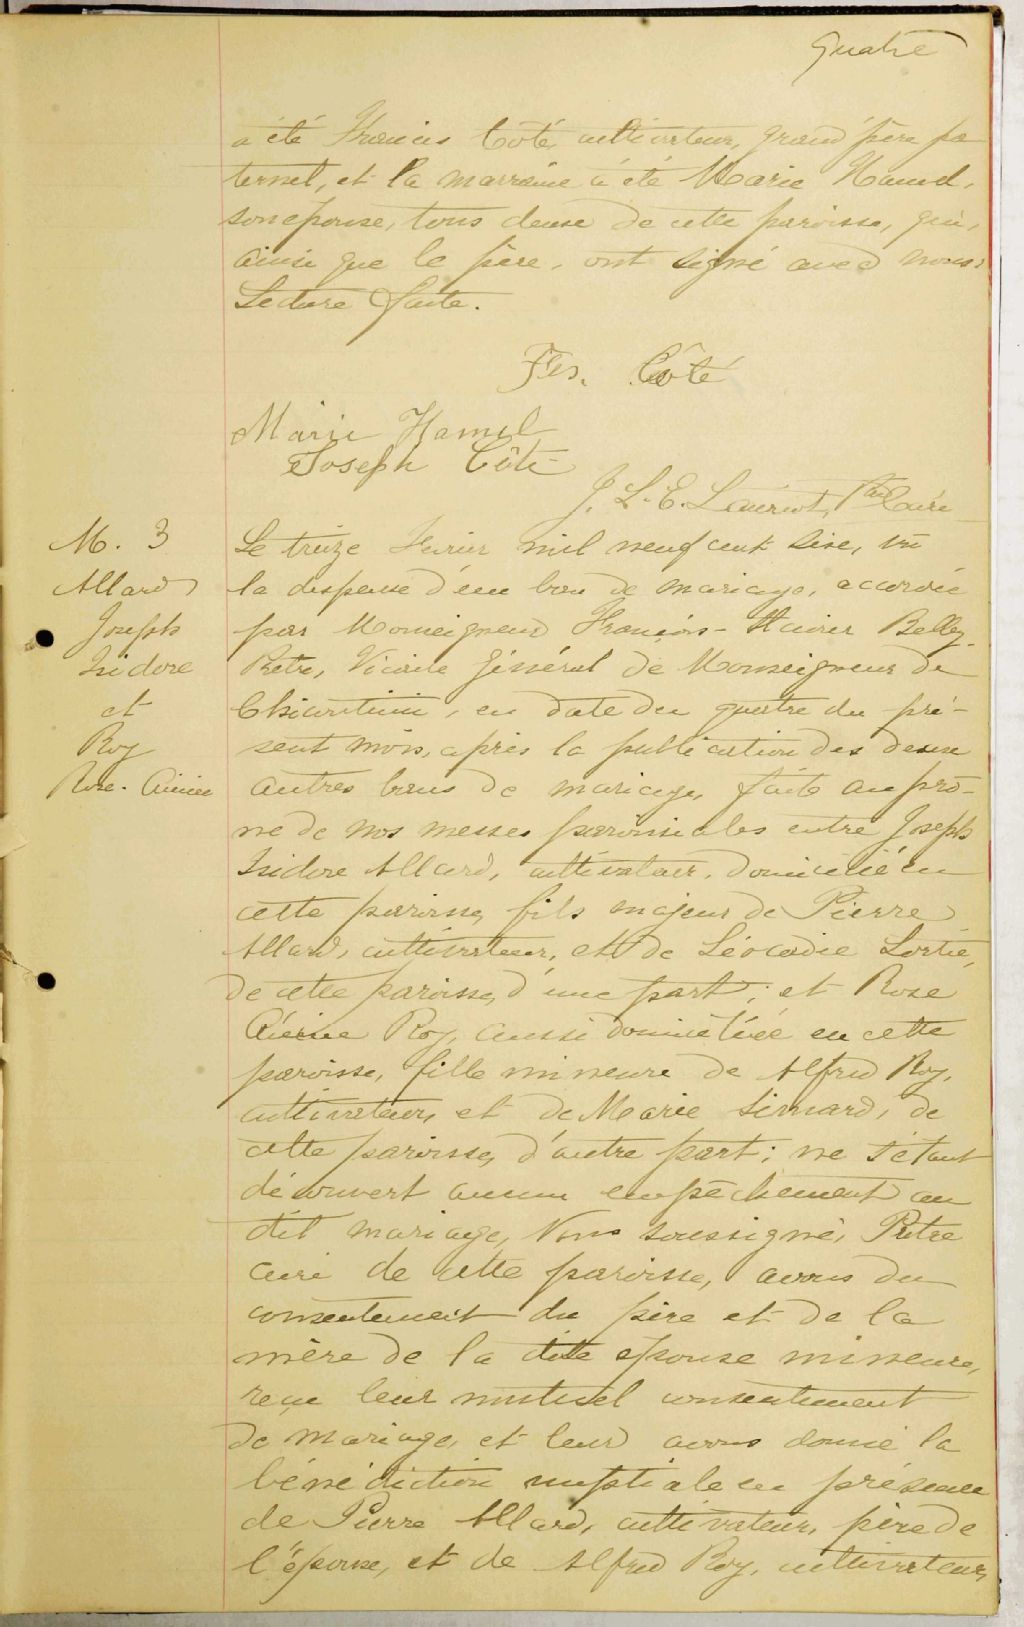 Quatre
a été Francis Côté, cultivateur, grand'père pa
ternel, et la marraine a été Marie Hamel,
son épouse, tous deux de cette paroisse, qui,
ainsi que le père, ont signé avec nous.
Lecture faite.
Frs. Côté
Marie Hamel
Joseph Côté
J. L. E. Lauriot, Ptre Curé
M. 3
Allard
Joseph
Isidore
et
Roy
Rose-Aimée
Le treize Février mil neuf cent seize, vu
la dispense d'un ban de mariage, accordée
par Monseigneur François-Xavier Belley
Prêtre, Vicaire Général de Monseigneur de
Chicoutimi, en date du quatre du pré-
sent mois, après la publication des deux
autres bans de mariage, faite au prô-
ne de nos messes paroissiales entre Joseph
Isidore Allard, cultivateur, domicilié en
cette paroisse, fils majeur de Pierre
Allard, cultivateur, et de Léocadie Lortie,
de cette paroisse, d'une part; et Rose
Aimée Roy, aussi domiciliée en cette
paroisse, fille mineure de Alfred Roy,
cultivateur, et de Marie Simard, de
cette paroisse, d'autre part; ne s'étant
découvert aucun empêchement au
dit mariage, Nous soussigné, Prêtre
curé de cette paroisse, avons du
consentement du père et de la
mère de la dite épouse mineure,
reçu leur mutuel consentement
de mariage, et leur avons donné la
bénédiction nuptiale en présence
de Pierre Allard, cultivateur, père de
l'épouse, et de Alfred Roy, cultivateur,